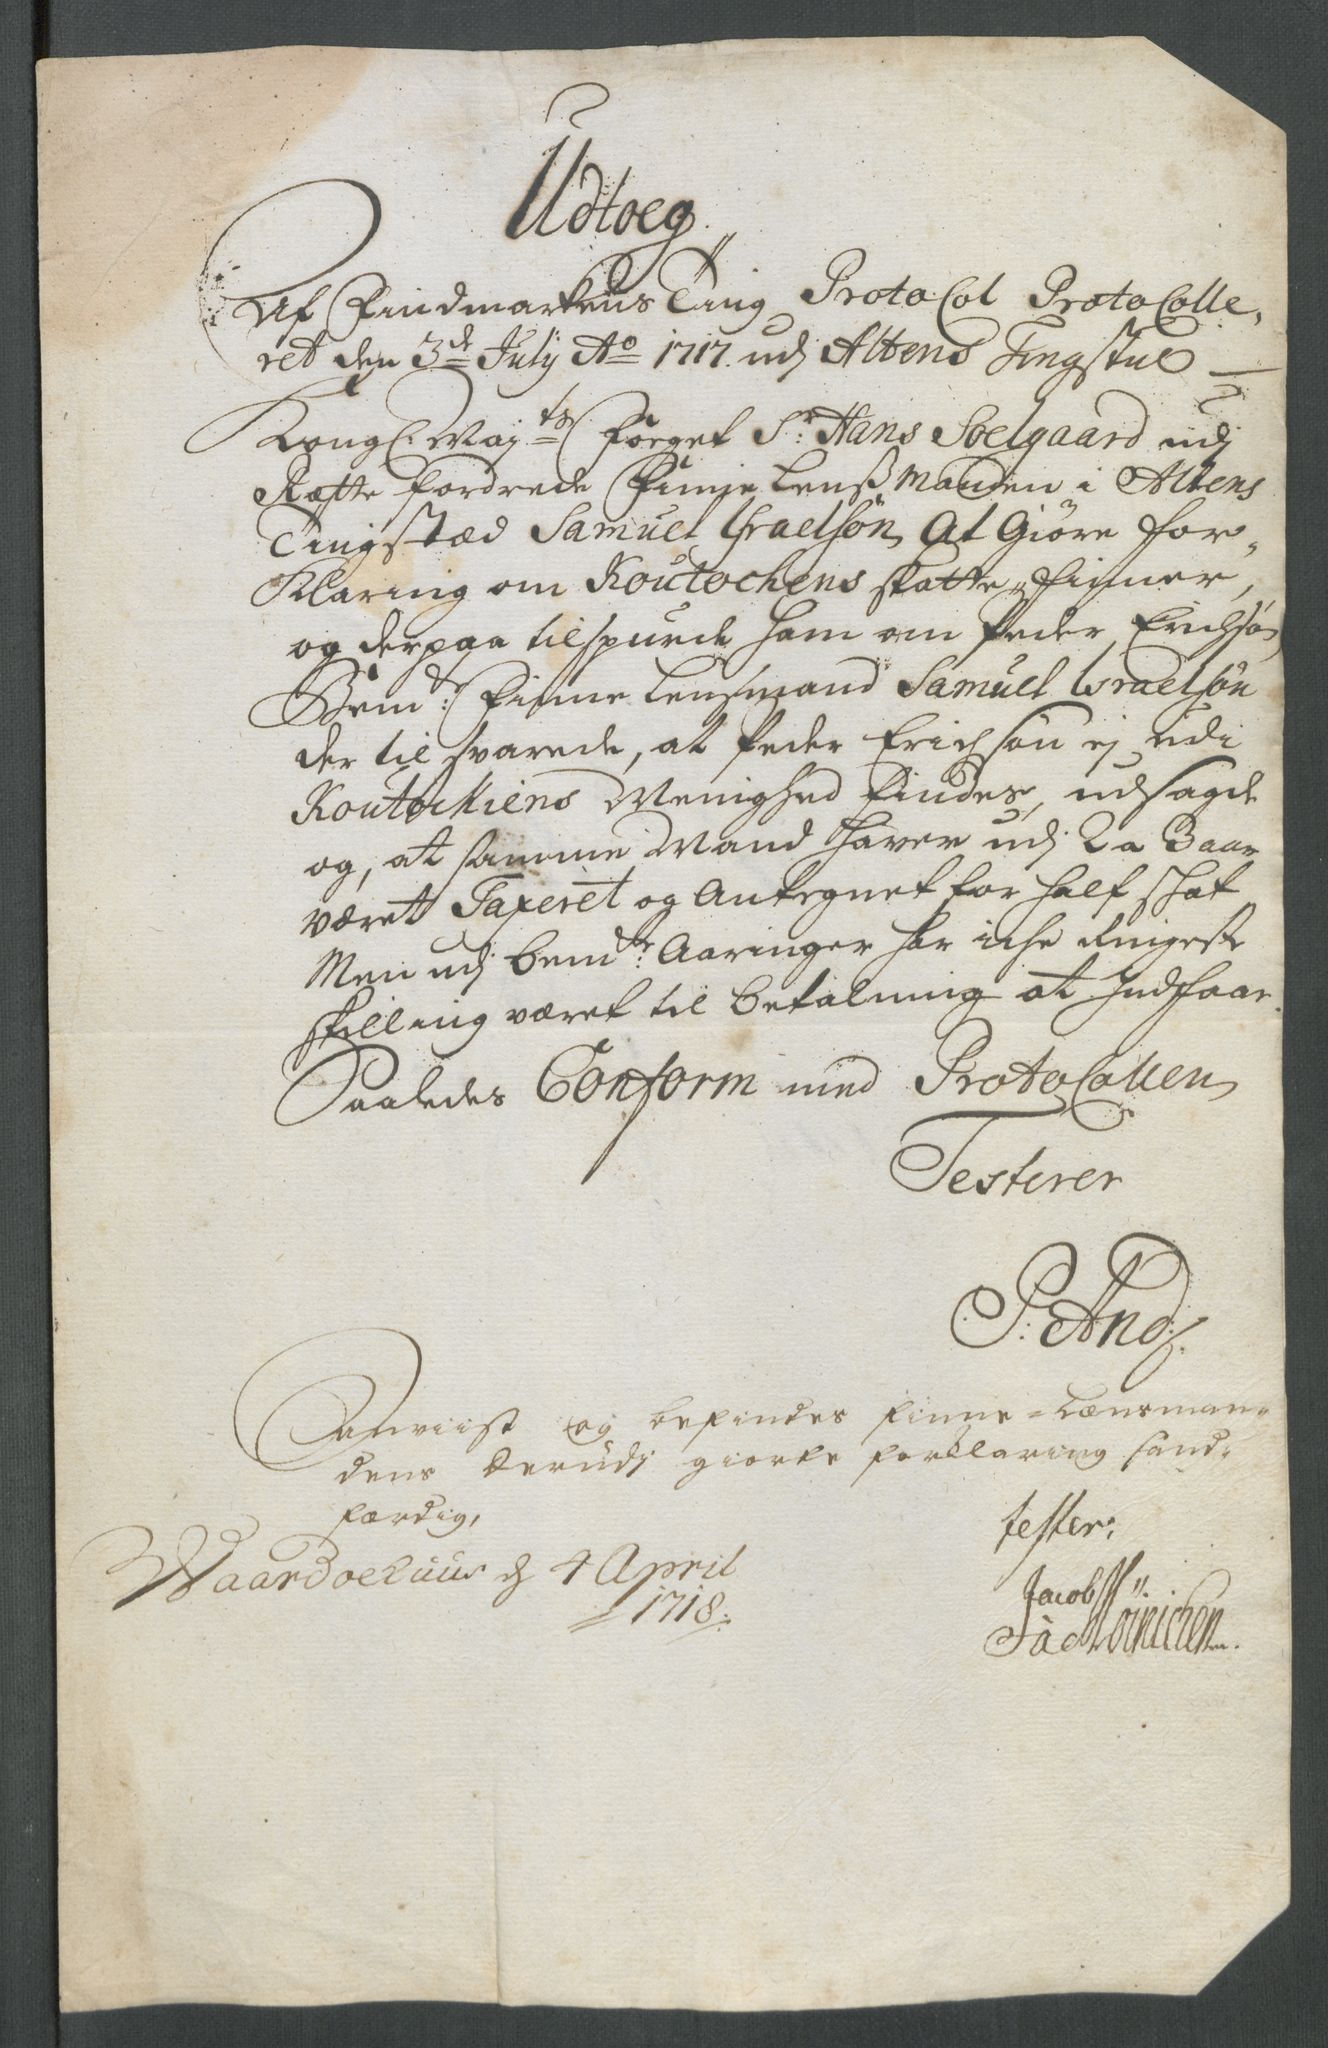 Udtoeg
Af Findmarkens Ting Protocol Protocolle,
ret den 3de July Ao 1717. udj Altens Tingstue
Kongl. Mayts Foeget Sr. Hans Soelgaard udj
Rætte fordrede Finne Lenßmanden i Altens
Tingstæd Samuel Israelsøn At Giøre for-
Klaring om Koutochens skatte Finner,
og derpaa tilspurde ham om Peder Erichsøn
Bemd: Finne Lensmand Samuel Israelsøn
der til svarede, at Peder Erichsøn ej udi
Koutockiens Menighed findes, udsagde
og, at samme Mand haver udj 2 a 3 aar
været Taxeret og Antegnet for half schat
Men udj bemdte: Aaringer har iche ringeste
skilling været til betalning at Indfaae.
Saaledes Conform med Protocollen
Testerer
P: And:
Anviist og befindes finne-Lænsman-
dens derudj giorte forklaring sand-
færdig,
tester:
Waardoehuus d 4 April
1718.
Jacob
Mönichen.